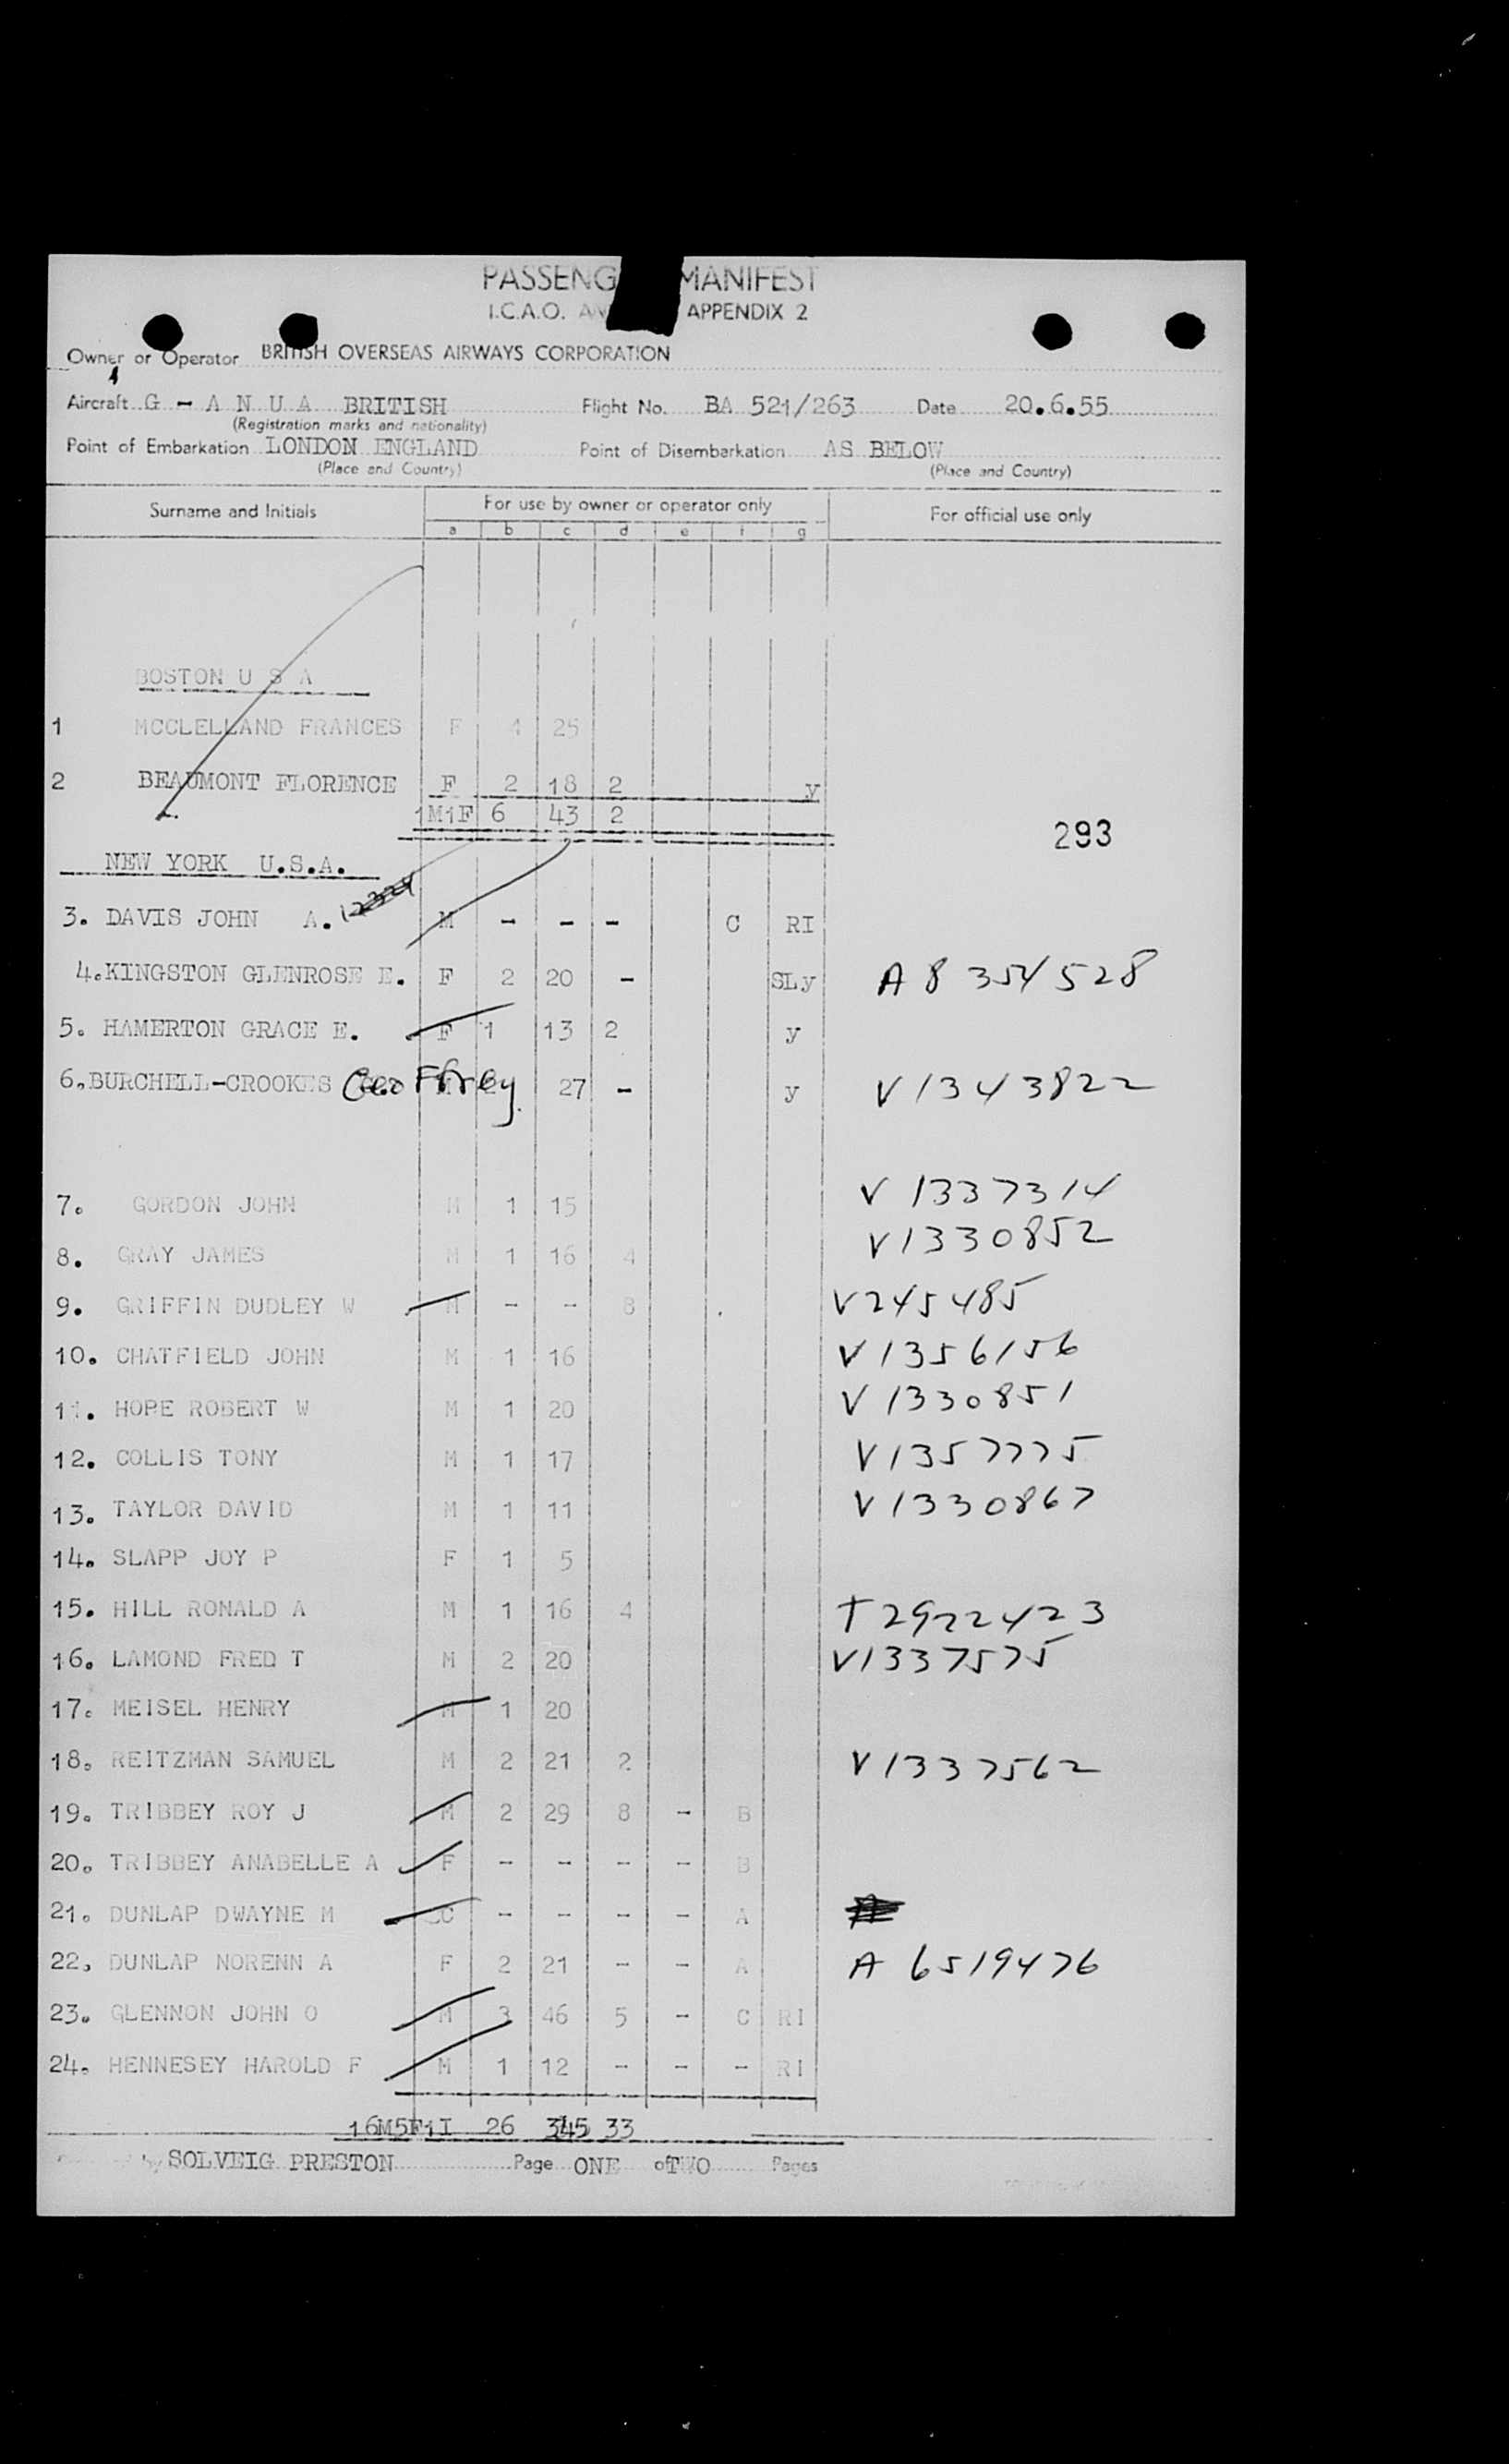 PASSENG MANIFEST
I.C.A.O. AN APPENDIX 2
Owner or Operator BRITISH OVERSEAS AIRWAYS CORPORATION
Aircraft G - A N U A BRITISH Flight No. BA 521/263 Date 20.6.55
(Registration marks and nationality)
Point of Embarkation LONDON ENGLAND Point of Disembarkation AS BELOW
(Place and Country) (Place and Country)
Surname and Initials For use by owner or operator only For official use only
a b c d e f g
BOSTON U S A
1 MCCLELLAND FRANCES F 4 25
2 BEAUMONT FLORENCE F 2 18 2 y
1M1F 6 43 2
293
NEW YORK U.S.A.
3. DAVIS JOHN A. M - - - C RI
4. KINGSTON GLENROSE E. F 2 20 - SLy A8 354 528
5. HAMERTON GRACE E. F 1 13 2 y
6. BURCHELL-CROOKES Geoffrey 27 - y V1343822
7. GORDON JOHN M 1 15 V 1337314
8. GRAY JAMES M 1 16 4 V1330852
9. GRIFFIN DUDLEY W M - - 8 V245485
10. CHATFIELD JOHN M 1 16 V1356156
11. HOPE ROBERT W M 1 20 V1330851
12. COLLIS TONY M 1 17 V1357775
13. TAYLOR DAVID M 1 11 V1330867
14. SLAPP JOY P F 1 5
15. HILL RONALD A M 1 16 4 T2922423
16. LAMOND FRED T M 2 20 V1337575
17. MEISEL HENRY M 1 20
18. REITZMAN SAMUEL M 2 21 2 V1337562
19. TRIBBEY ROY J M 2 29 8 - B
20. TRIBBEY ANABELLE A F - - - - B
21. DUNLAP DWAYNE M C - - - - A
22. DUNLAP NORENN A F 2 21 - - A A 6519476
23. GLENNON JOHN O M 3 46 5 - C RI
24. HENNESEY HAROLD F M 1 12 - - - RI
16M5F1I 26 345 33
by SOLVEIG PRESTON Page ONE of TWO Pages